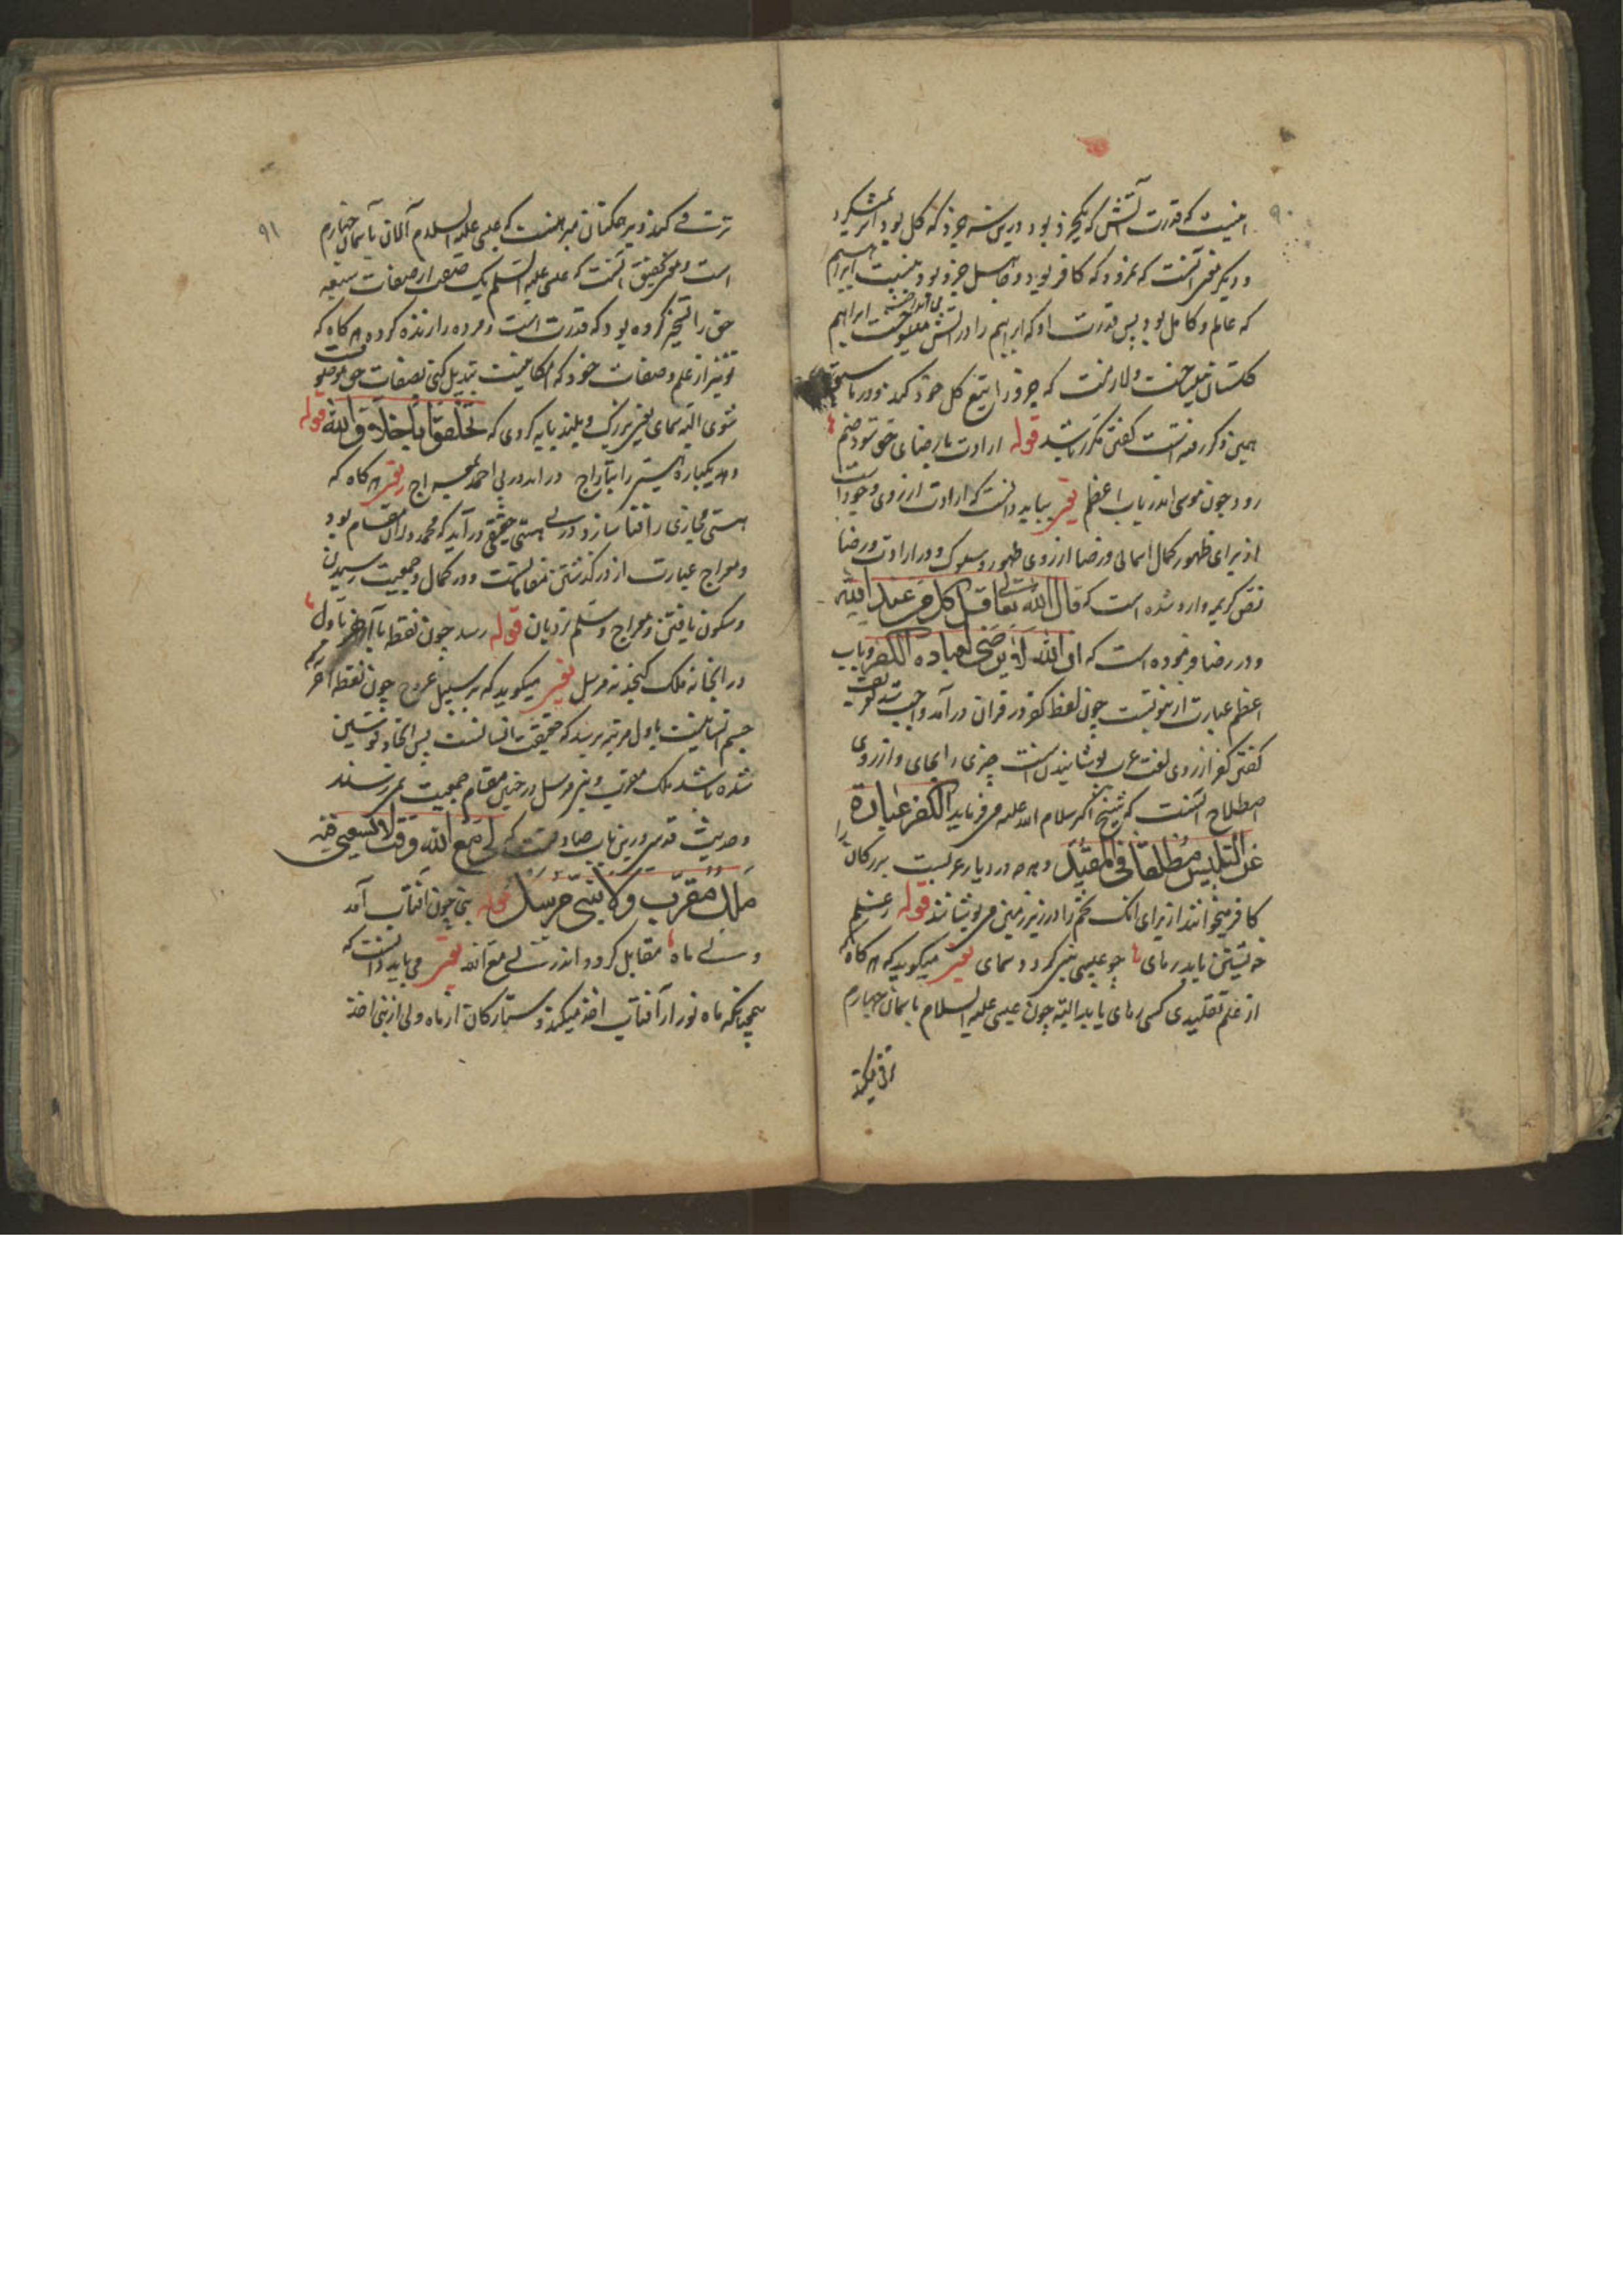 ۹۰
اینست که قدرت آتش که یکجزو بود درین سه جزو که کل بود اثر نمیکرد
و دیگر معنی آنست که نمرود که کافر بود و جاهل جزو بود بنسبت ابراهیم
که عالم و کامل بود پس قدرت او که ابراهیم را در آتش می انداخت ابراهیم
گلستان میساخت و لازمست که جزو را تبع کل خود کند و در ما سبق
همین ذکر رفته است گفتن مکرر باشد قوله ارادت با رضای حق شود ضم
رود چون موسی اندر باب اعظم تفسیر بباید دانست که ارادت از روی وجود است
از برای ظهور کمال اسمائی و رضا از روی ظهور و سلوک و در ارادت و رضا
نص کریم وارد شده است که قال الله تعالی قل کل من عند الله
و در رضا فرموده است که ان الله لا یرضی لعباده الکفر و باب
اعظم عبارت ازینوست چون لفظ کفر در قران درآمد واجب شد تعریف
گفتن کفر از روی لغت عرب پوشانیدن است چیزی را بجای و از روی
اصطلاح آنست که شیخ اکبر سلام الله علیه می فرماید الکفر عبادة
عن التلبیس مطلقا فی المقید و هرچه در دیار عربست برزکان را
کافر میخوانند از برای انک تخم را در زیر زمین می پوشانند قوله ز علم
خویشتن یابد رهای چو عیسی نبی گردد سمای تفسیر میگوید که هرگاه که
از علم تقلیدی کسی رهای یابد البته چون عیسی علیه السلام باسمان چهارم
ترقی میکند
۹۱
ترقی کند و بر حکمتان مبرهنست که عیسی علیه السلام الان باسمان چهارم
است و معنی تحقیق آنست که عیسی علیه السلم یک صفت از صفات سبعه
حق را تسخیر کرده بود که قدرت است و مرده را زنده کرده هرگاه که
تو نیز از علم و صفات خود که امکانیست تبدیل کنی بصفات حق موصوف
شوی البته سمای یعنی بزرگ و بلند پایه کردی که تخلقوا باخلاق الله قوله
دهد یکباره هستی را بتاراج دراید در پی احمد بمعراج تفسیر هرگاه که
هستی مجازی را فنا سازد در پی هستی حقیقی درآید که محمد در آن مقام بود
و معراج عبارت از در گذشتن مقاماتست و در کمال و جمعیت رسیدن
و سکون یافتن و معراج و سلم نردبان قوله رسد چون نقطه آخر باول
در انجا نه ملک گنجد نه مرسل تفسیر میگوید که بر سبیل عروج چون نقطه آخر که
جسم انسانیست باول مرتبه برسد که حقیقت انسانست پس اتحاد قوسین
شده باشد ملک مقرب و نبی مرسل در چنین مقام جمعیت نمیرسند
و حدیث قدسی درین باب صادقست که لی مع الله وقت لا یسعنی فیه
ملك مقرب ولا نبی مرسل قوله نبی چون آفتاب آمد
ولی ماه مقابل گردد اندر لی مع الله تفسیر می باید دانست که
همچنانکه ماه نور از آفتاب اخذ میکند و ستارگان از ماه ولی از نبی اخذ